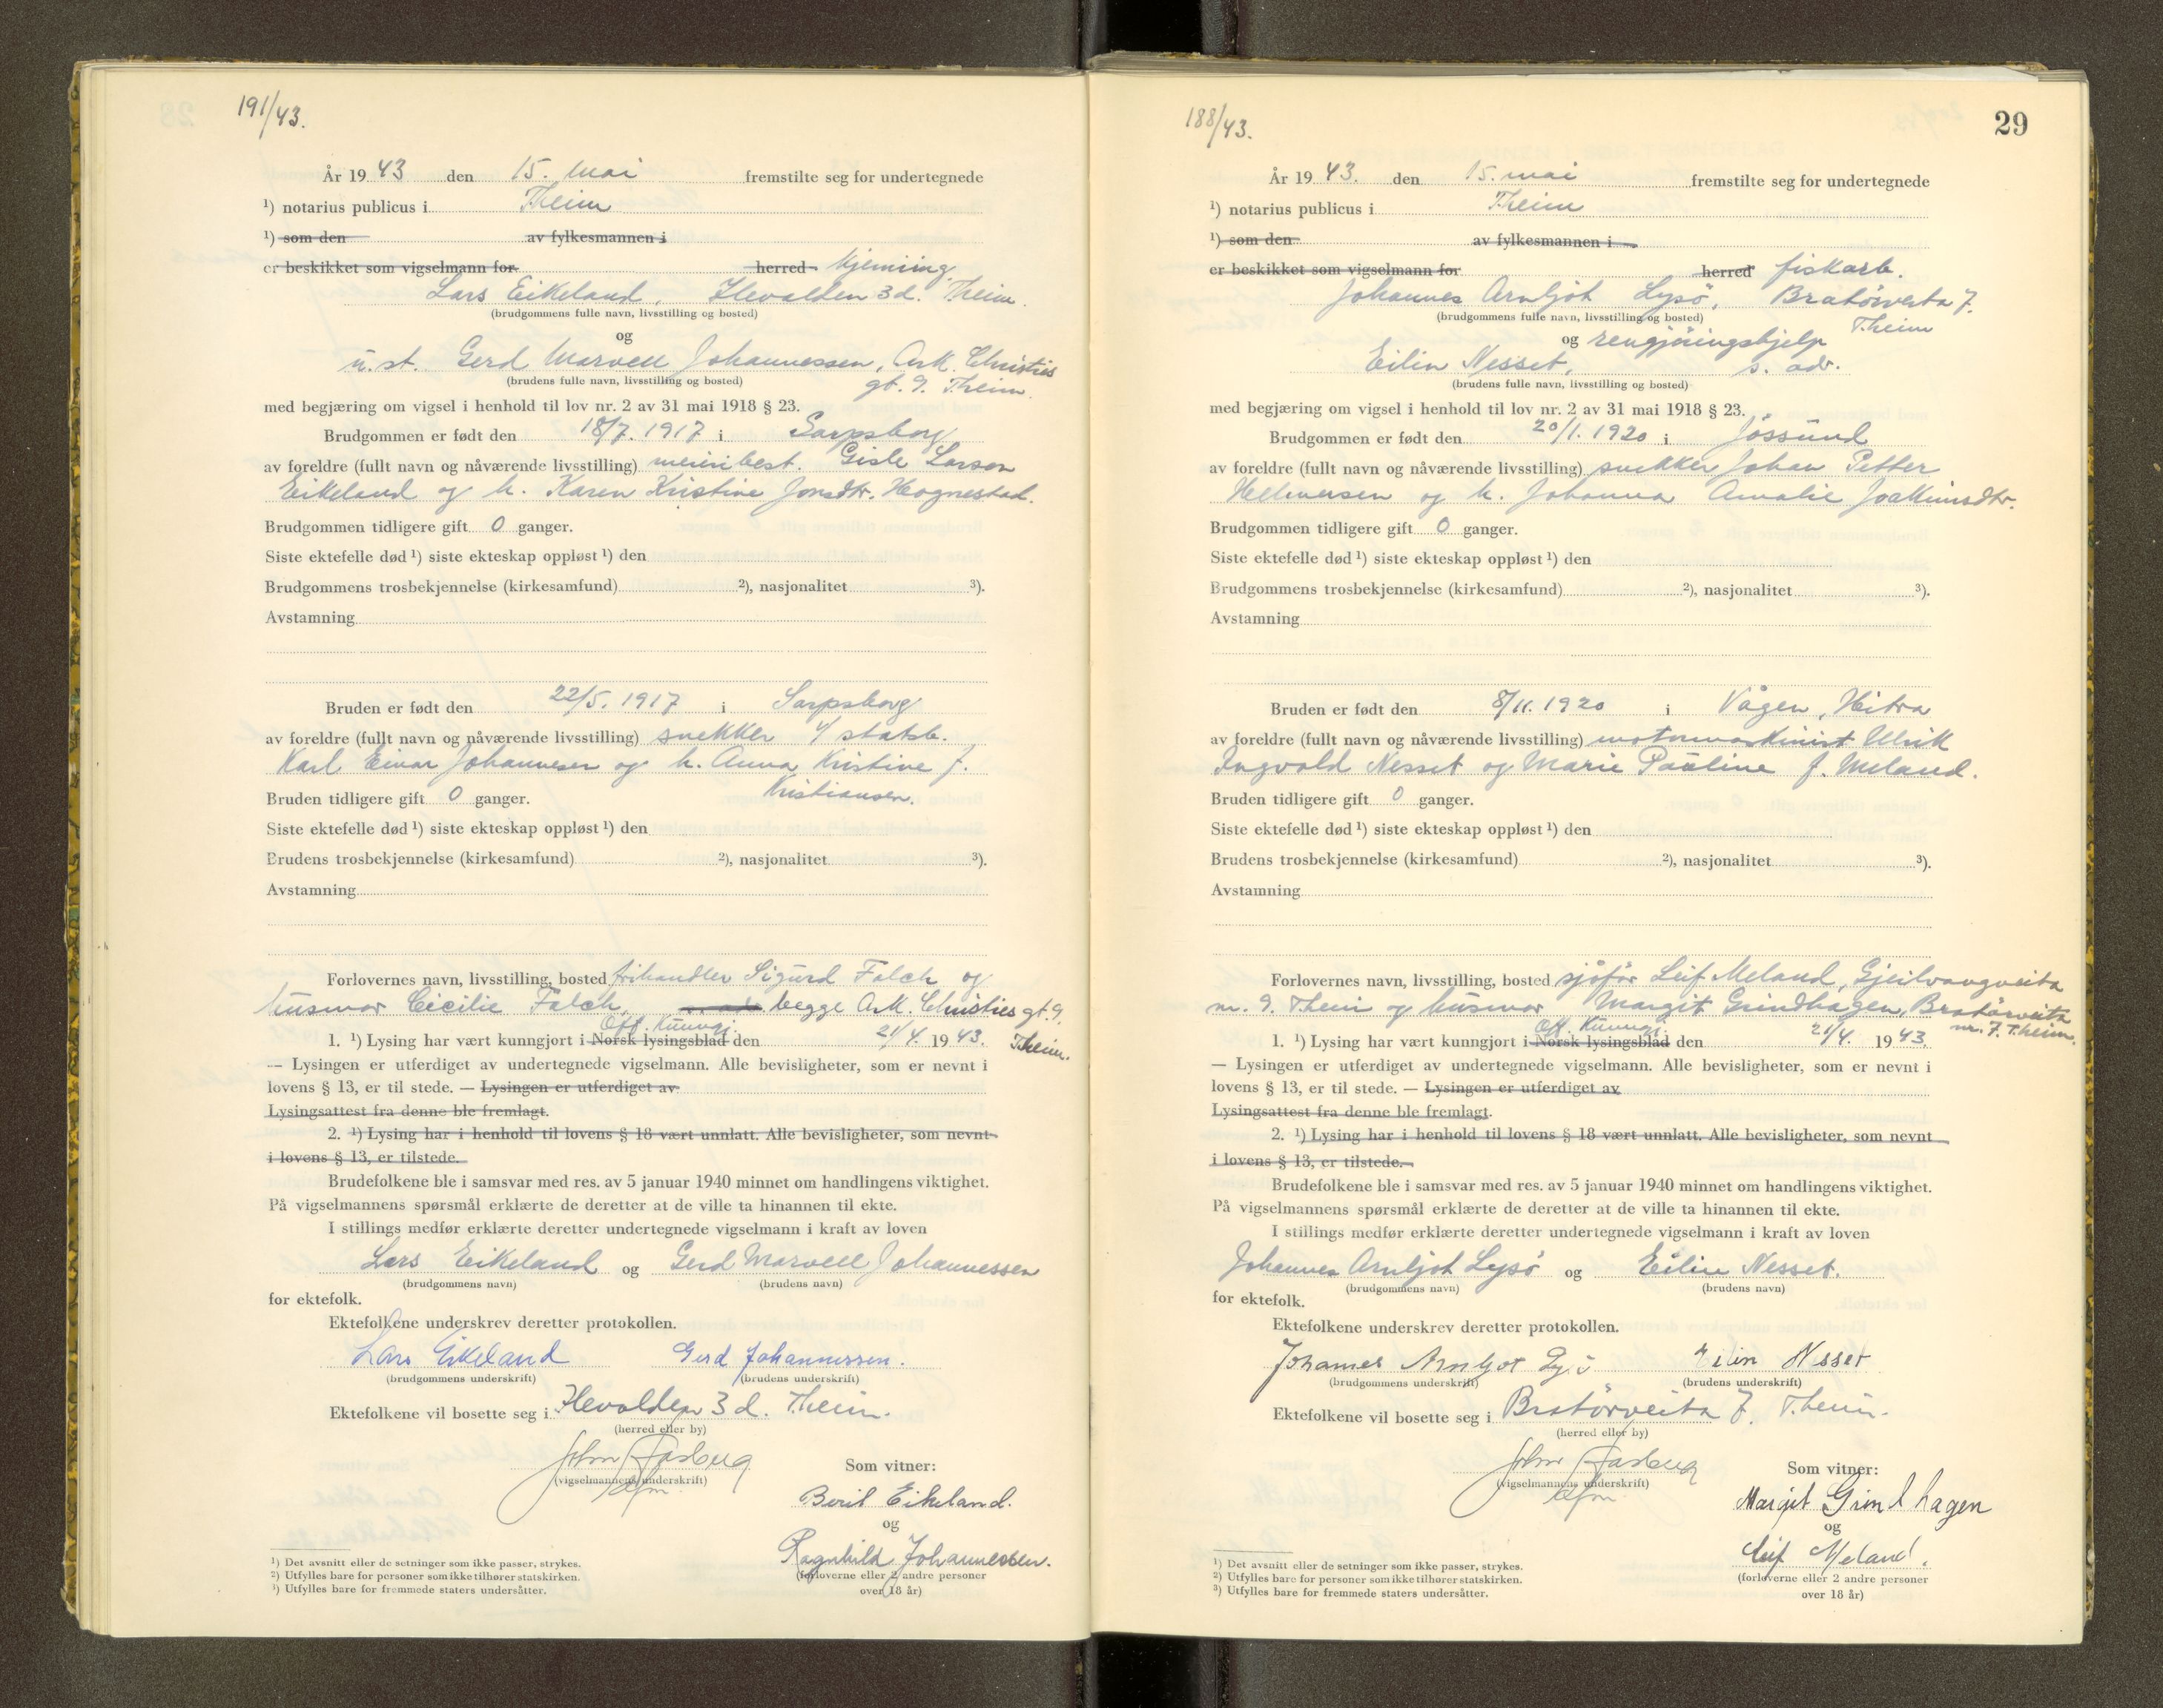 191/43.
År 19 43 den 15. mai fremstilte seg for undertegnede
¹) notarius publicus i Theim
¹) som den av fylkesmannen i
er beskikket som vigselmann for herred
Lars Eikeland, Ilevolden 3 d. Theim.
(brudgommens fulle navn, livsstilling og bosted)
og
u. st. Gerd Marvell Johannessen, Ark. Christies
(brudens fulle navn, livsstilling og bosted) gt. 9. Theim.
med begjæring om vigsel i henhold til lov nr. 2 av 31 mai 1918 § 23.
Brudgommen er født den 18/7. 1917 i Sarpsborg
av foreldre (fullt navn og nåværende livsstilling) meieribest. Gisle Larsen
Eikeland og h. Karen Kristine Jonsdtr. Hognestad.
Brudgommen tidligere gift 0 ganger.
Siste ektefelle død ¹) siste ekteskap oppløst ¹) den
Brudgommens trosbekjennelse (kirkesamfund) ²), nasjonalitet ³).
Avstamning
Bruden er født den 22/5. 1917 i Sarpsborg
av foreldre (fullt navn og nåværende livsstilling) snekker v/ statsb.
Karl Einar Johannesen og h. Anna Kristine f.
Kristiansen.
Bruden tidligere gift 0 ganger.
Siste ektefelle død ¹) siste ekteskap oppløst ¹) den
Brudens trosbekjennelse (kirkesamfund) ²), nasjonalitet ³).
Avstamning
Forlovernes navn, livsstilling, bosted Sigurd Falch og
husmor Cecilie Falch, begge Ark. Christies gt. 9.
Off. kunngj.
1. ¹) Lysing har vært kunngjort i Norsk lysingsblad den 21/4. 19 43. Theim.
— Lysingen er utferdiget av undertegnede vigselmann. Alle bevisligheter, som er nevnt i
lovens § 13, er til stede. — Lysingen er utferdiget av
Lysingsattest fra denne ble fremlagt.
2. ¹) Lysing har i henhold til lovens § 18 vært unnlatt. Alle bevisligheter, som nevnt
i lovens § 13, er tilstede.
Brudefolkene ble i samsvar med res. av 5 januar 1940 minnet om handlingens viktighet.
På vigselmannens spørsmål erklærte de deretter at de ville ta hinannen til ekte.
I stillings medfør erklærte deretter undertegnede vigselmann i kraft av loven
Lars Eikeland og Gerd Marvell Johannessen
(brudgommens navn) (brudens navn)
for ektefolk.
Ektefolkene underskrev deretter protokollen.
Lars Eikeland Gerd Johannessen.
(brudgommens underskrift) (brudens underskrift)
Ektefolkene vil bosette seg i Ilevolden 3 d. Theim.
(herred eller by)
John Aasberg
(vigselmannens underskrift)
Som vitner:
Beril Eikeland.
og
Ragnhild Johannessen.
(forloverne eller 2 andre personer
over 18 år)
¹) Det avsnitt eller de setninger som ikke passer, strykes.
²) Utfylles bare for personer som ikke tilhører statskirken.
³) Utfylles bare for fremmede staters undersåtter.
188/43.
29
År 19 43. den 15. mai fremstilte seg for undertegnede
¹) notarius publicus i Theim
¹) som den av fylkesmannen i
er beskikket som vigselmann for herred fiskarb.
Johannes Arnljot Lysö, Bratörveita 7.
(brudgommens fulle navn, livsstilling og bosted) Theim
og rengjöringshjelp
Eilin Nesset, s. adr.
(brudens fulle navn, livsstilling og bosted)
med begjæring om vigsel i henhold til lov nr. 2 av 31 mai 1918 § 23.
Brudgommen er født den 20/1. 1920 i Jössund
av foreldre (fullt navn og nåværende livsstilling) snekker Johan Petter
Helmersen og h. Johanna Amalie Joakimsdtr.
Brudgommen tidligere gift 0 ganger.
Siste ektefelle død ¹) siste ekteskap oppløst ¹) den
Brudgommens trosbekjennelse (kirkesamfund) ²), nasjonalitet ³).
Avstamning
Bruden er født den 8/11. 1920 i Vågen, Hitra
av foreldre (fullt navn og nåværende livsstilling) motormaskinist Ulrik
Ingvald Nesset og Marie Pauline f. Meland.
Bruden tidligere gift 0 ganger.
Siste ektefelle død ¹) siste ekteskap oppløst ¹) den
Brudens trosbekjennelse (kirkesamfund) ²), nasjonalitet ³).
Avstamning
Forlovernes navn, livsstilling, bosted sjåför Leif Meland, Gjeilvangveita
nr. 9. Theim og husmor Margit Grindhagen, Bratörveita
nr. 7. Theim.
Off. kunngj.
1. ¹) Lysing har vært kunngjort i Norsk lysingsblad den 21/4. 19 43.
— Lysingen er utferdiget av undertegnede vigselmann. Alle bevisligheter, som er nevnt i
lovens § 13, er til stede. — Lysingen er utferdiget av
Lysingsattest fra denne ble fremlagt.
2. ¹) Lysing har i henhold til lovens § 18 vært unnlatt. Alle bevisligheter, som nevnt
i lovens § 13, er tilstede.
Brudefolkene ble i samsvar med res. av 5 januar 1940 minnet om handlingens viktighet.
På vigselmannens spørsmål erklærte de deretter at de ville ta hinannen til ekte.
I stillings medfør erklærte deretter undertegnede vigselmann i kraft av loven
Johannes Arnljot Lysö og Eilin Nesset.
(brudgommens navn) (brudens navn)
for ektefolk.
Ektefolkene underskrev deretter protokollen.
Johannes Arnljot Lysö Eilin Nesset
(brudgommens underskrift) (brudens underskrift)
Ektefolkene vil bosette seg i Bratörveita 7. Theim.
(herred eller by)
John Aasberg
(vigselmannens underskrift)
Som vitner:
Margit Grindhagen
og
Leif Meland.
(forloverne eller 2 andre personer
over 18 år)
¹) Det avsnitt eller de setninger som ikke passer, strykes.
²) Utfylles bare for personer som ikke tilhører statskirken.
³) Utfylles bare for fremmede staters undersåtter.